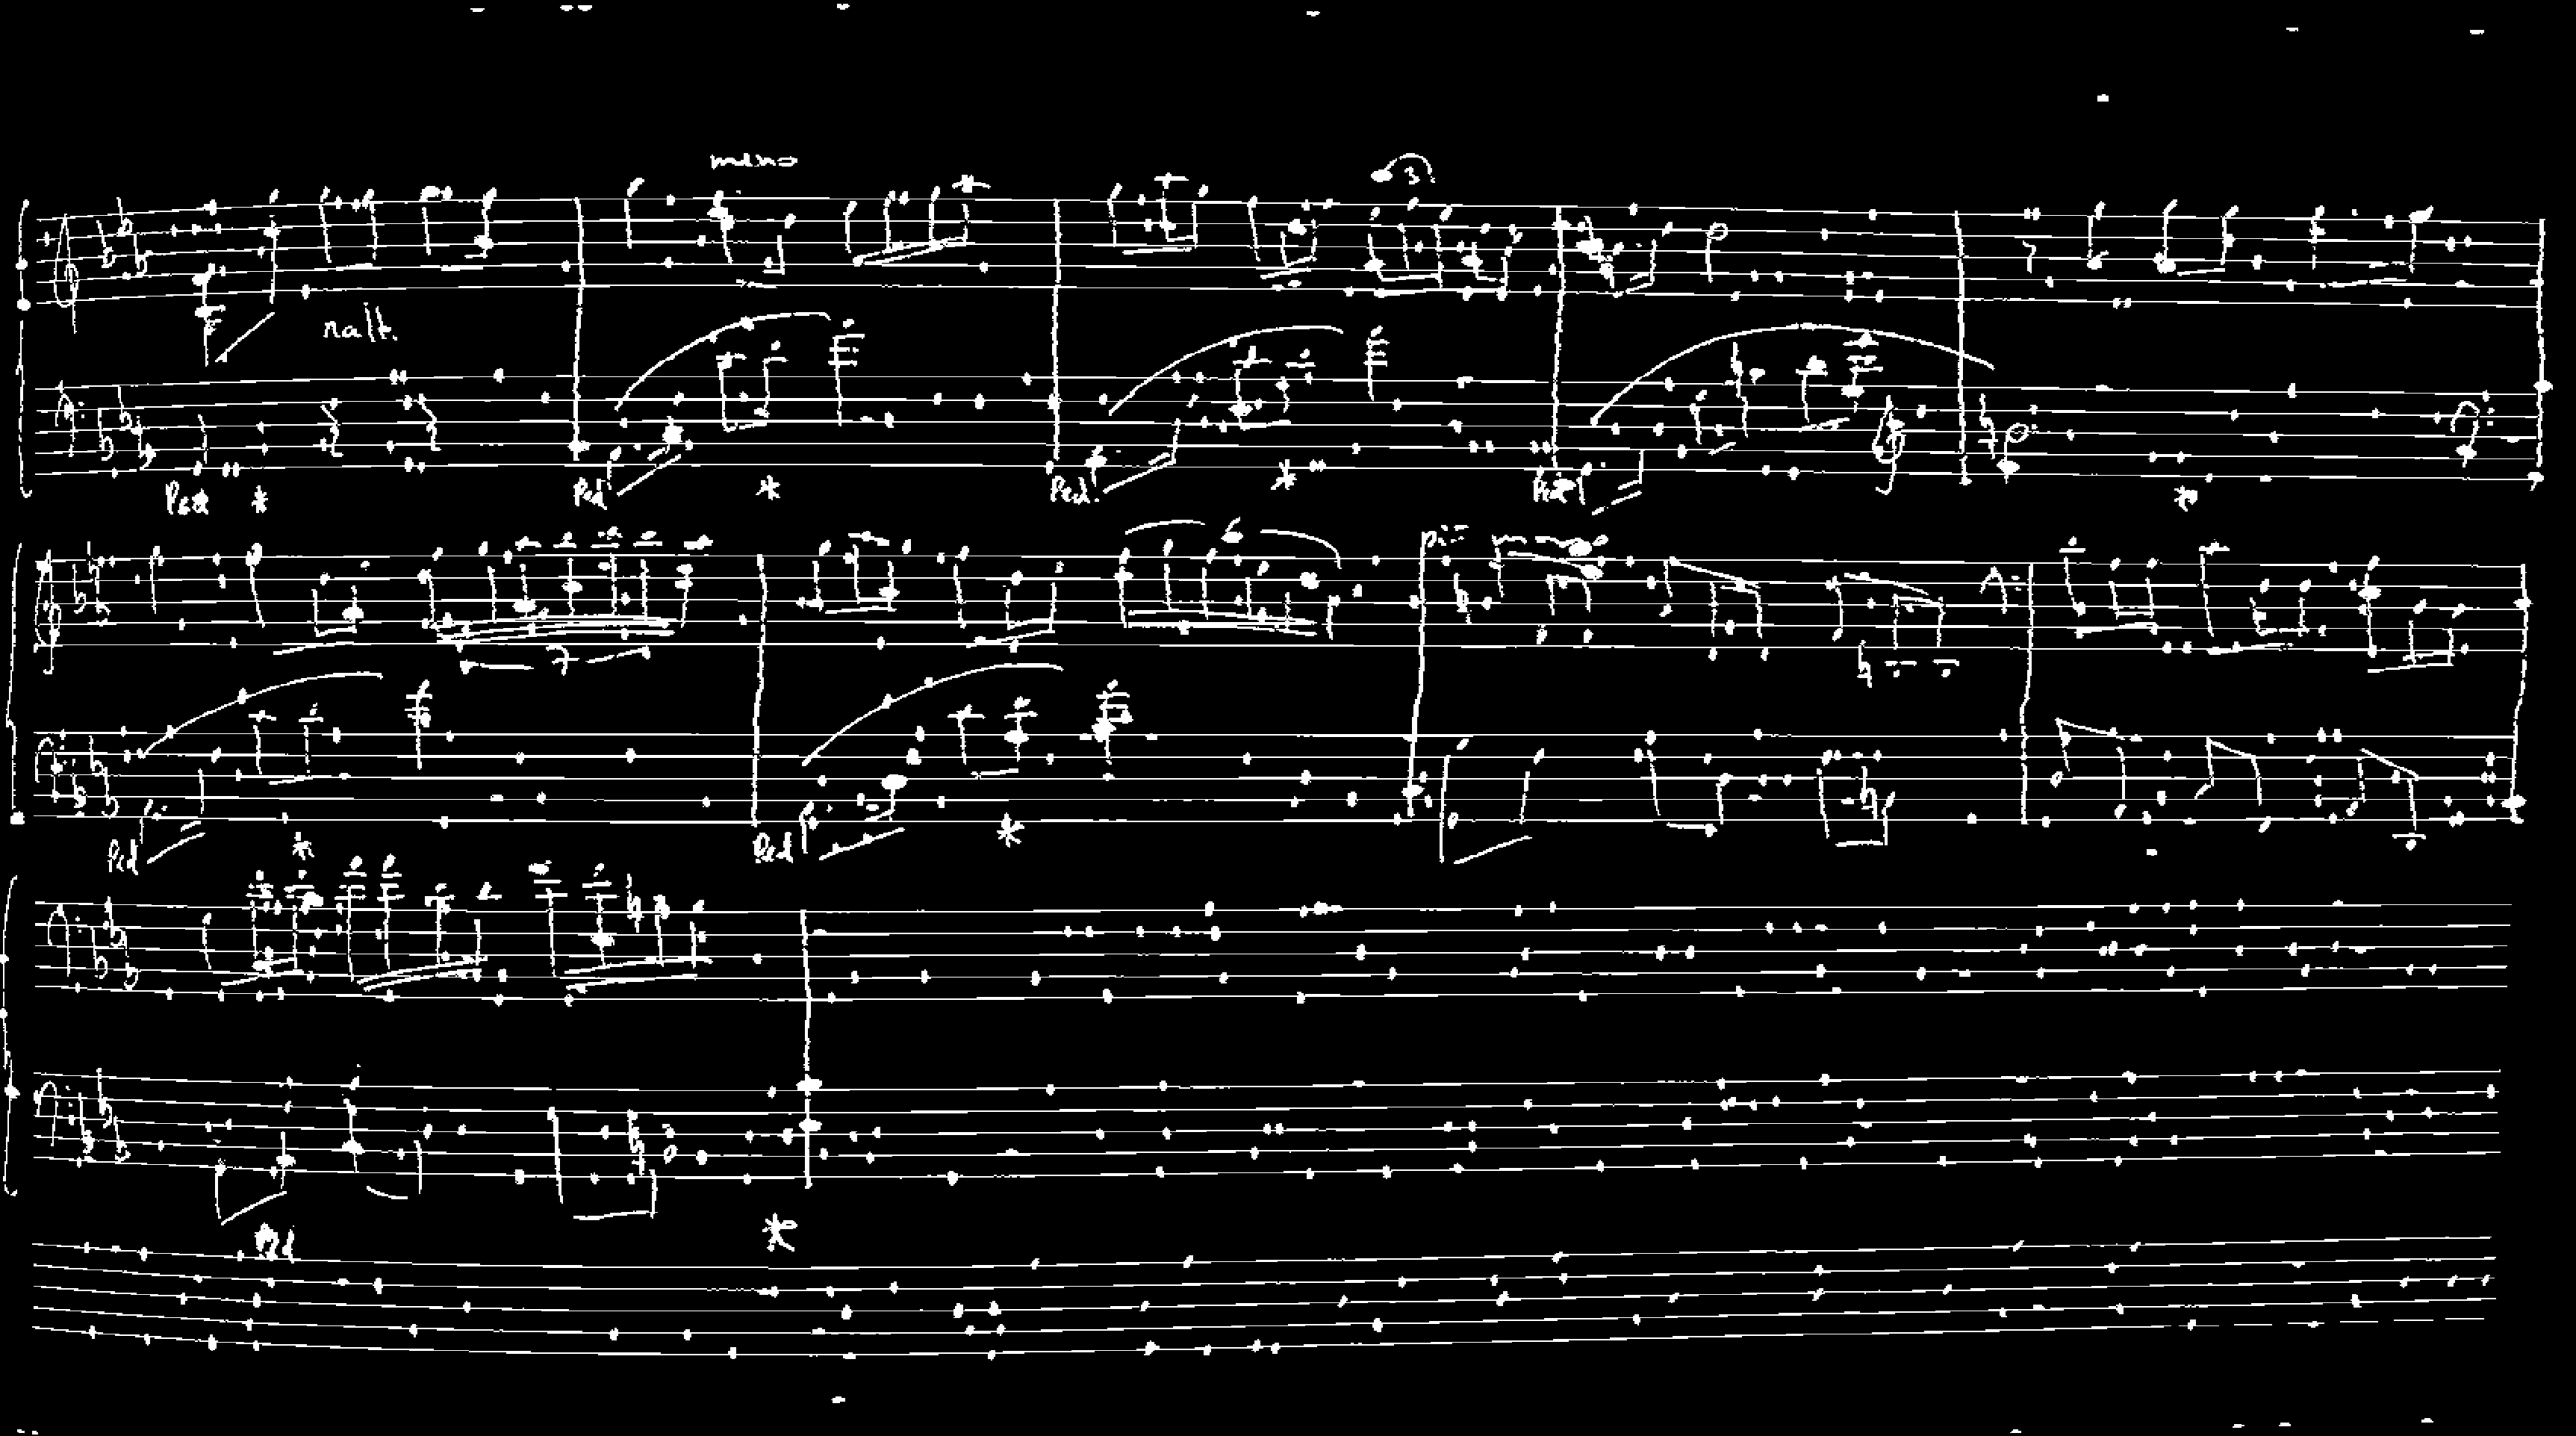 meno
3
rall.
Ped * Ped * Ped. * Ped *
6
più mosso
7
Ped * Ped *
Ped *